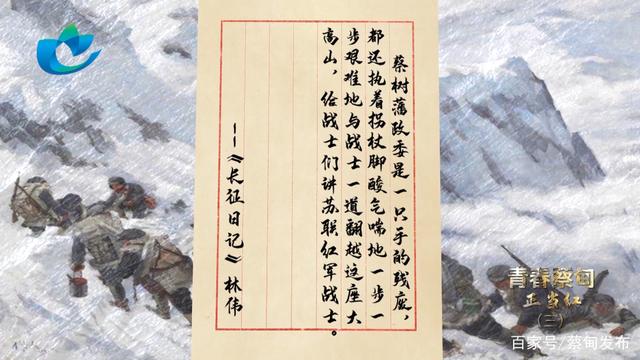 蔡树藩政委是一只手的残废，
都还执着拐杖脚酸气喘地一步一
步艰难地与战士一道翻越这座大
高山，给战士们讲苏联红军战士。
——《长征日记》林伟
青春蔡甸
正当红
（三）
百家号/蔡甸发布